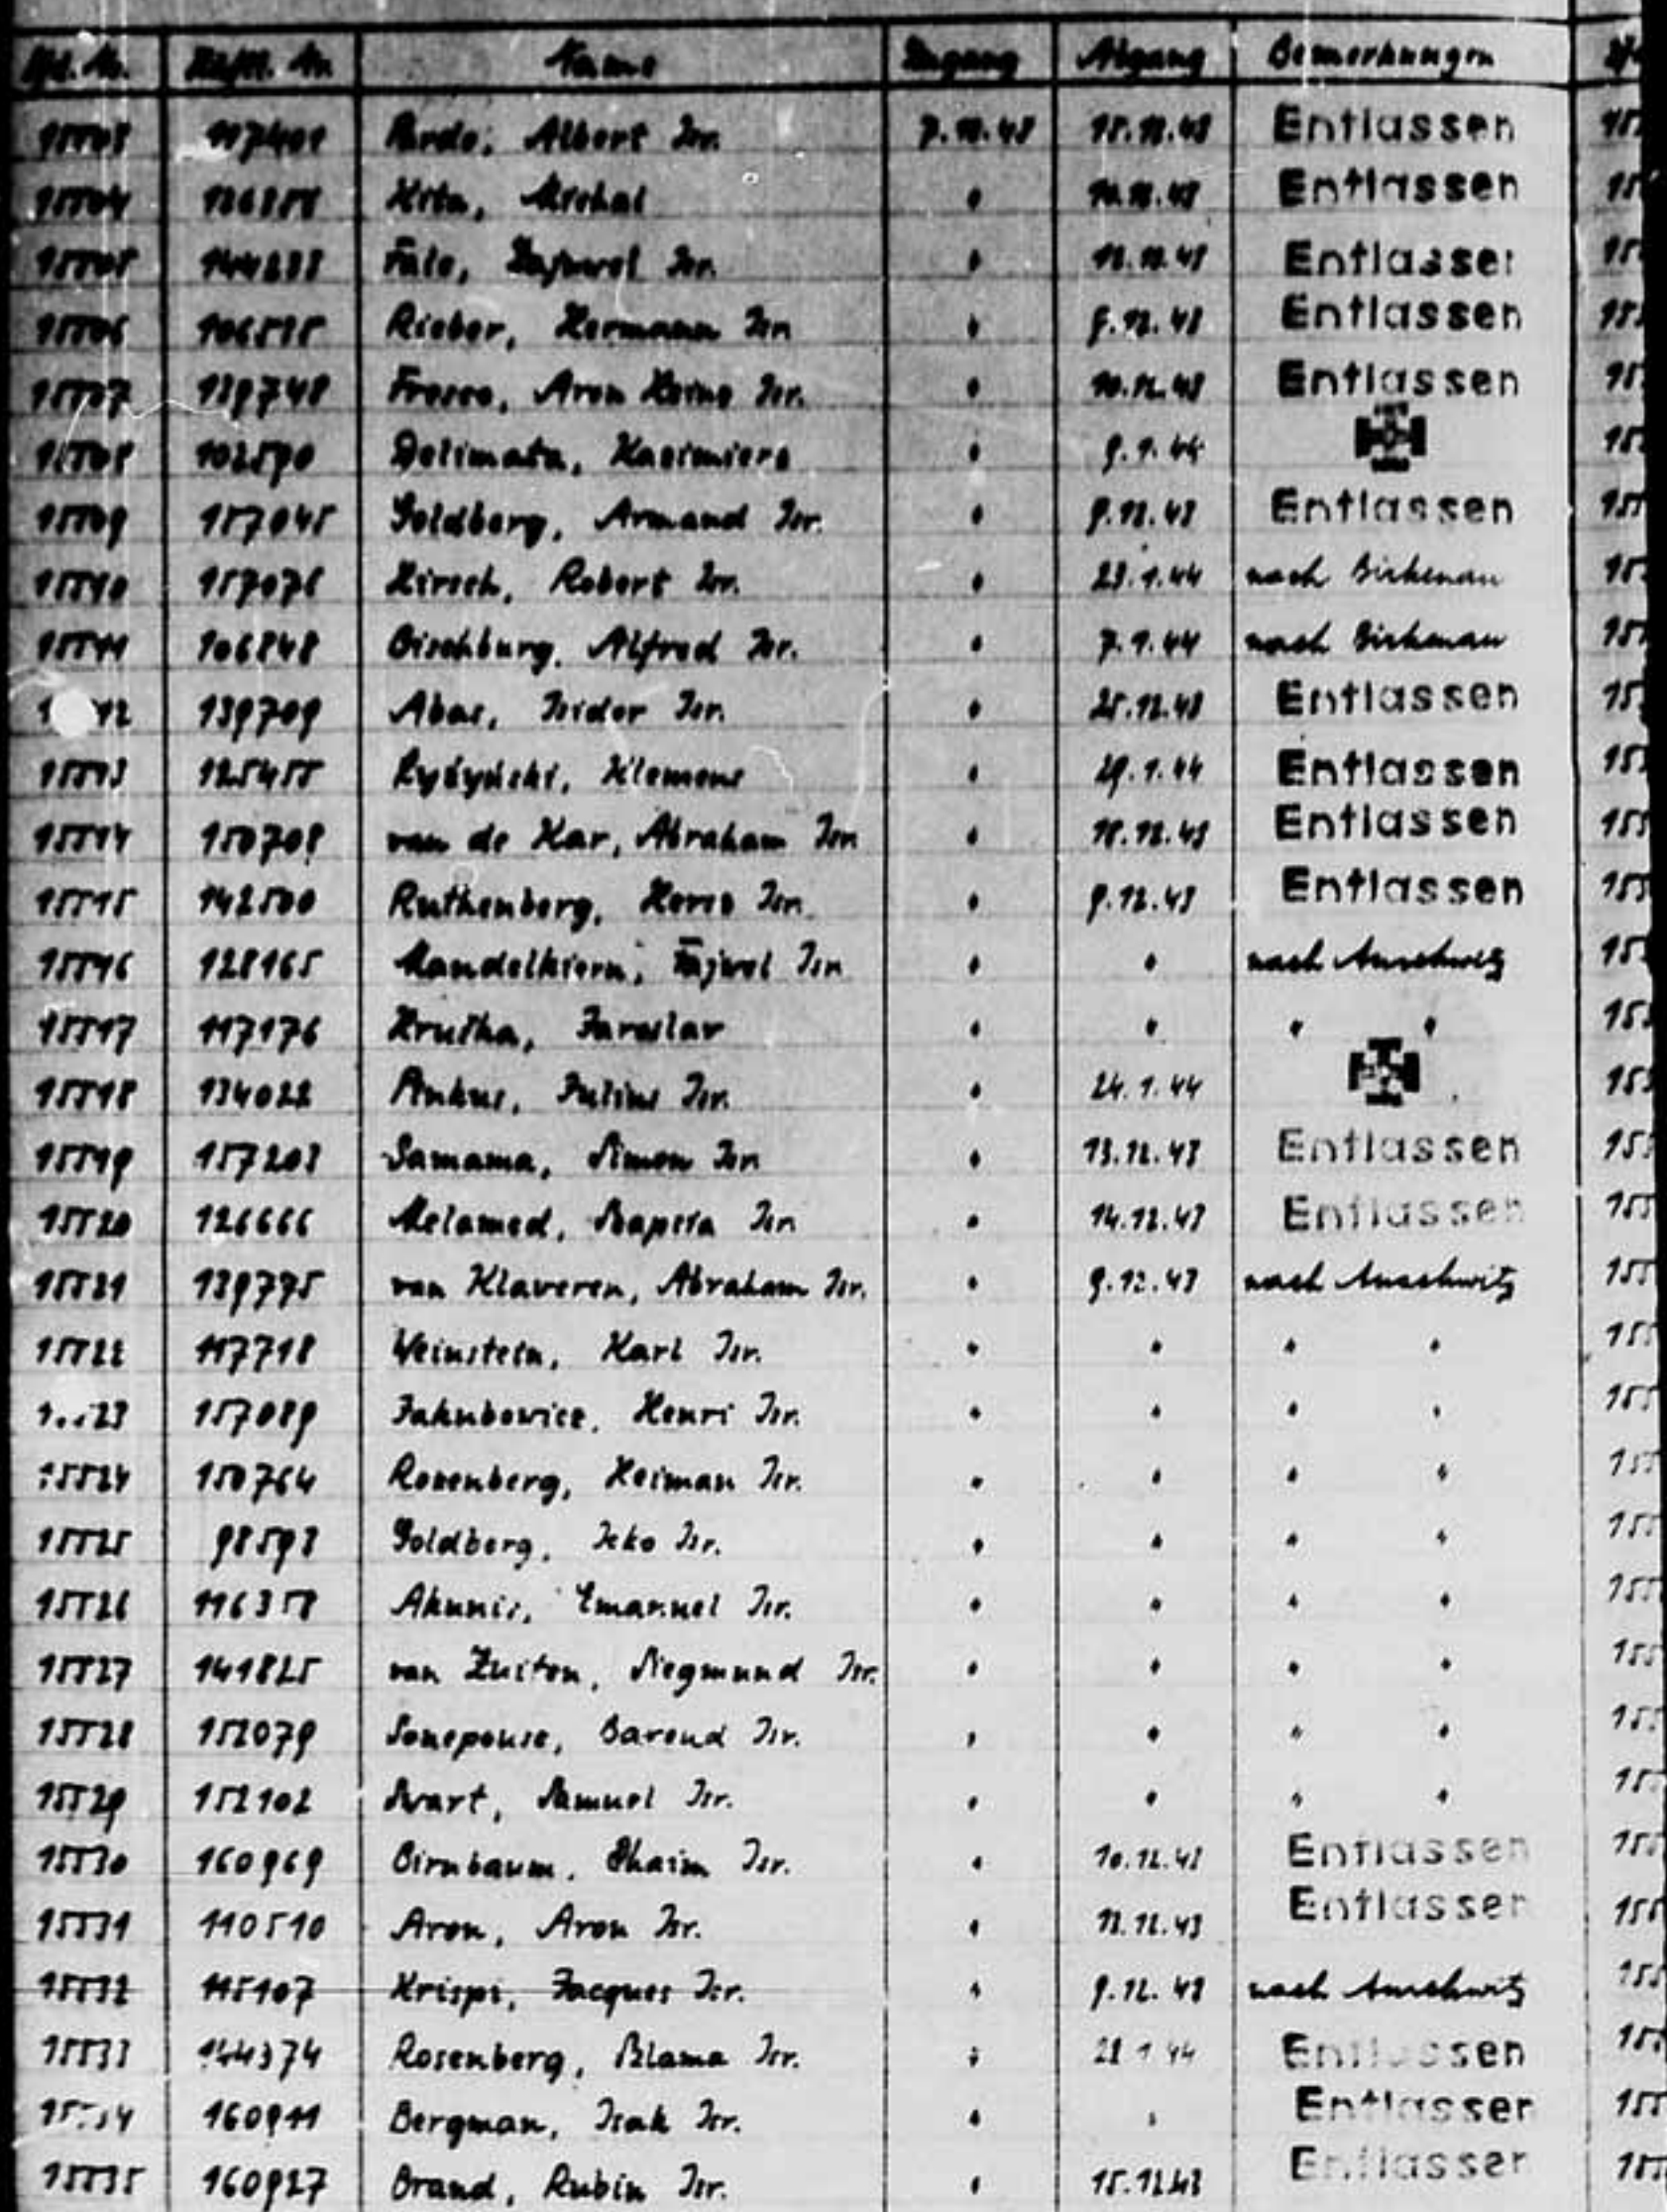 Lfd. Nr. Häftl. Nr. Name Zugang Abgang Bemerkungen
15503 117401 Pardo, Albert Isr. 7.12.43 15.12.43 Entlassen
15504 Michal " Entlassen
15505 Isr. " Entlassen
15506 106515 Rieber, Hermann Isr. " 9.12.43 Entlassen
15507 139748 Aron Isr. " 10.12.43 Entlassen
15508 102590 Delimata, Kasimiers " 9.1.44
15509 157045 Goldberg, Armand Isr. " 9.12.43 Entlassen
15510 Hirsch, Robert Isr. " nach Birkenau
15511 106848 Bischburg, Alfred Isr. " 7.1.44 nach Birkenau
12 139709 Abas, Isidor Isr. " 25.12.43 Entlassen
15513 125455 Klemens " 29.1.44 Entlassen
15514 150708 van de Kar, Abraham Isr. " 18.12.43 Entlassen
15515 142500 Ruthenberg, Isr. " 9.12.43 Entlassen
15516 128165 Mandelkiern, Fajwel Isr. " " nach Auschwitz
15517 117176 Hruška, Jaroslav " " " "
15518 134022 Pinkus, Julius Isr. " 24.1.44
15519 157203 Samama, Simon Isr. " 13.12.43 Entlassen
15520 126666 Melamed, Isr. " 14.12.43 Entlassen
15521 139775 van Klaveren, Abraham Isr. " 9.12.43 nach Auschwitz
15522 117718 Weinstein, Karl Isr. " " " "
23 157089 Jakubowicz, Henri Isr. " " " "
15524 150764 Rosenberg, Heiman Isr. " " " "
15525 98593 Goldberg, Isr. " " " "
15526 Akunis, Emanuel Isr. " " " "
15527 141825 van Zuiten, Siegmund Isr. " " " "
15528 152079 Barend Isr. " " " "
15529 152102 Swart, Samuel Isr. " " " "
15530 160969 Birnbaum, Chaim Isr. " 10.12.43 Entlassen
15531 110510 Aron, Aron Isr. " Entlassen
15532 115107 Krispi, Jacques Isr. " 9.12.43 nach Auschwitz
15533 144374 Rosenberg, Szlama Isr. " Entlassen
160911 Bergman, Isak Isr. " " Entlassen
15535 160927 Brand, Rubin Isr. " 15.12.43 Entlassen